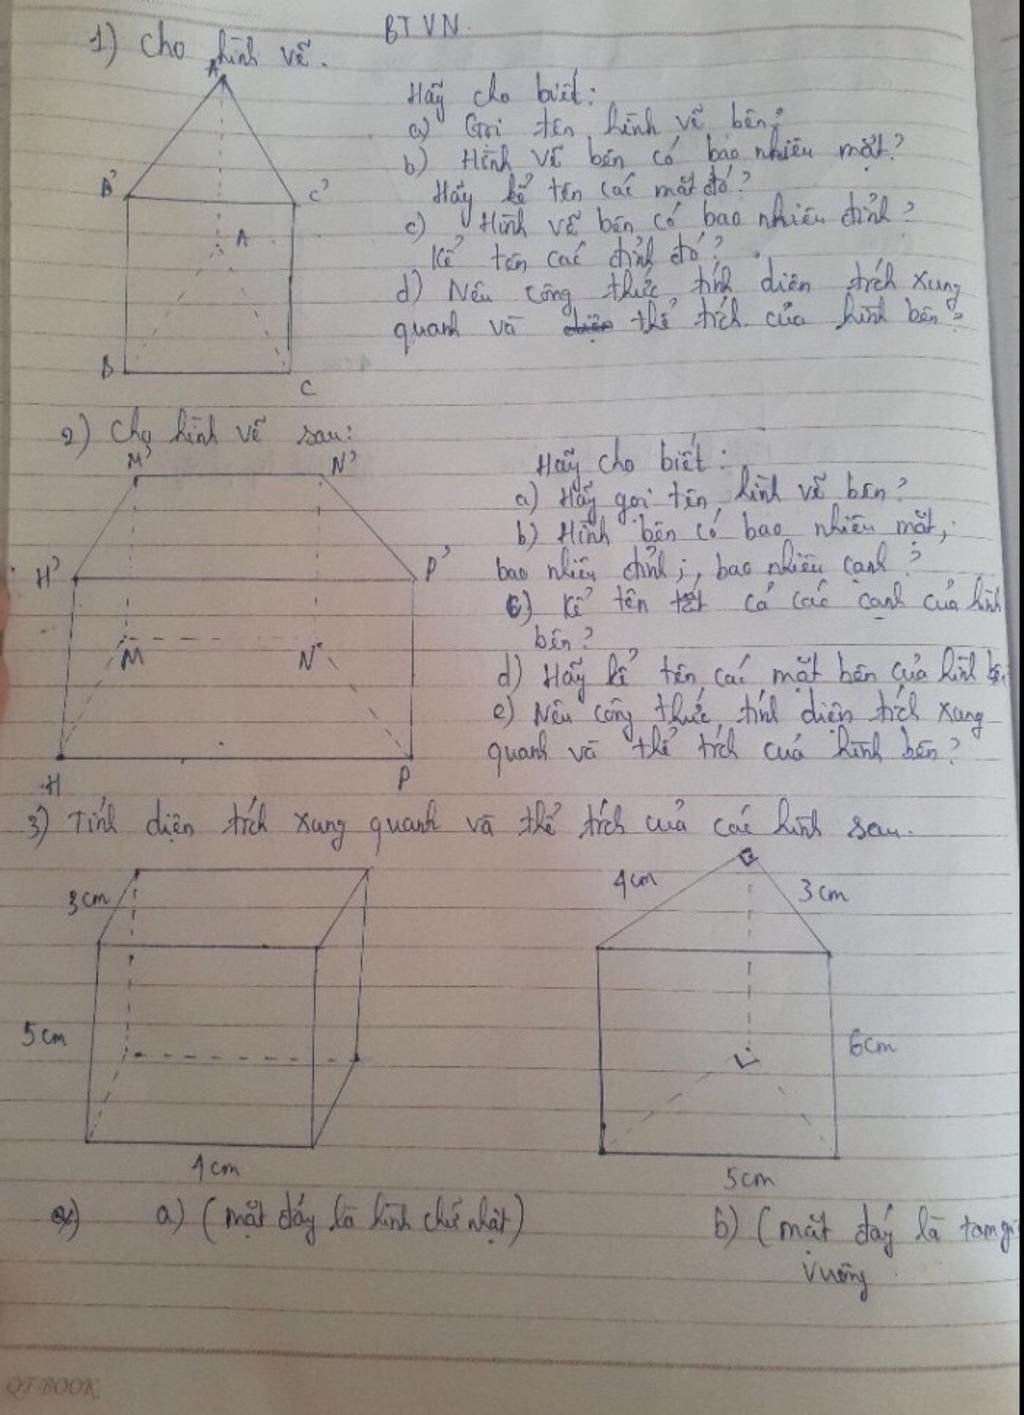 BTVN.
1) Cho hình vẽ.
A'
Hãy cho biết:
a) Gọi tên hình vẽ bên?
b) Hình vẽ bên có bao nhiêu mặt?
B'
C'
Hãy kể tên các mặt đó?
c) Hình vẽ bên có bao nhiêu đỉnh?
A
Kể tên các đỉnh đó?
d) Nêu công thức tính diện tích xung
quanh và thể tích của hình bên?
B
C
2) Cho hình vẽ sau:
M'
N'
Hãy cho biết:
a) Hãy gọi tên hình vẽ bên?
b) Hình bên có bao nhiêu mặt,
H'
P'
bao nhiêu đỉnh;, bao nhiêu cạnh?
c) Kể tên tất cả các cạnh của hình
bên?
M
N
d) Hãy kể tên các mặt bên của hình
e) Nêu công thức tính diện tích xung
quanh và thể tích của hình bên?
H
P
3) Tính diện tích xung quanh và thể tích của các hình sau.
3cm
4cm
3cm
5cm
6cm
4cm
5cm
a) (mặt đáy là hình chữ nhật)
b) (mặt đáy là
vuông
QT BOOK